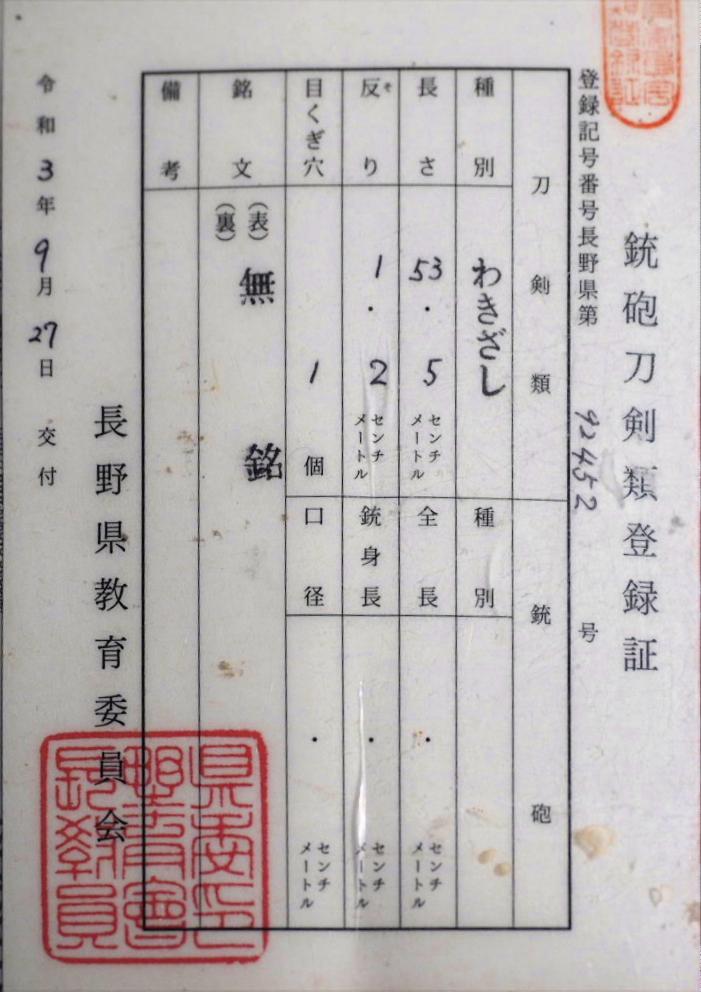 銃砲刀剣類登録証
登録記号番号長野県第 92452 号
刀剣類
種別 わきざし
長さ 53.5 センチメートル
反り 1.2 センチメートル
そ
目くぎ穴 1 個
銘文 (表) 無銘
(裏)
備考
銃砲
種別
全長 . センチメートル
銃身長 . センチメートル
口径 . センチメートル
令和3年9月27日 交付
長野県教育委員会